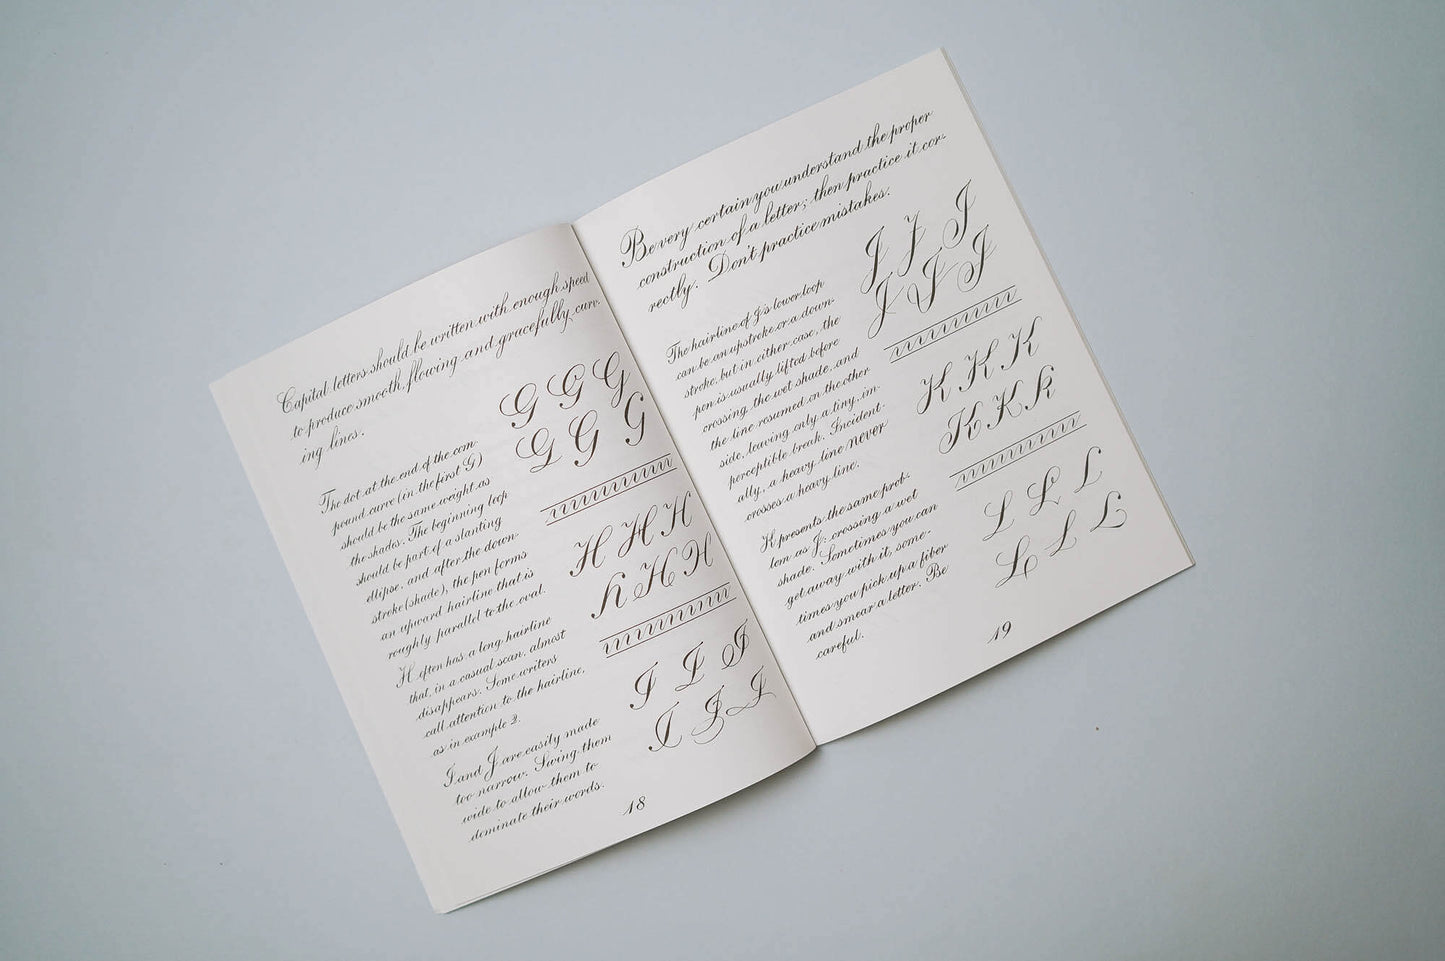 Capital letters should be written with enough speed
to produce smooth, flowing and gracefully curv-
ing lines.
The dot at the end of the com-
pound curve (in the first G)
should be the same weight as
the shades. The beginning loop
should be part of a slanting
ellipse, and after the down-
stroke (shade), the pen forms
an upward hairline that is
roughly parallel to the oval.
H often has a long hairline
that, in a casual scan, almost
disappears. Some writers
call attention to the hairline,
as in example 2.
I and J are easily made
too narrow. Swing them
wide to allow them to
dominate their words.
G G G
G G G
H H H
H H H
I I I
I I I
18
Be very certain you understand the proper
construction of a letter; then practice it cor-
rectly. Don't practice mistakes.
The hairline of J's lower loop
can be an upstroke or a down-
stroke, but in either case, the
pen is usually lifted before
crossing the wet shade, and
the line resumed on the other
side, leaving only a tiny, im-
perceptible break. Incident-
ally, a heavy line never
crosses a heavy line.
K presents the same prob-
lem as J: crossing a wet
shade. Sometimes you can
get away with it, some-
times you pick up a fiber
and smear a letter. Be
careful.
J J J
J J J
K K K
K K K
L L L
L L L
19